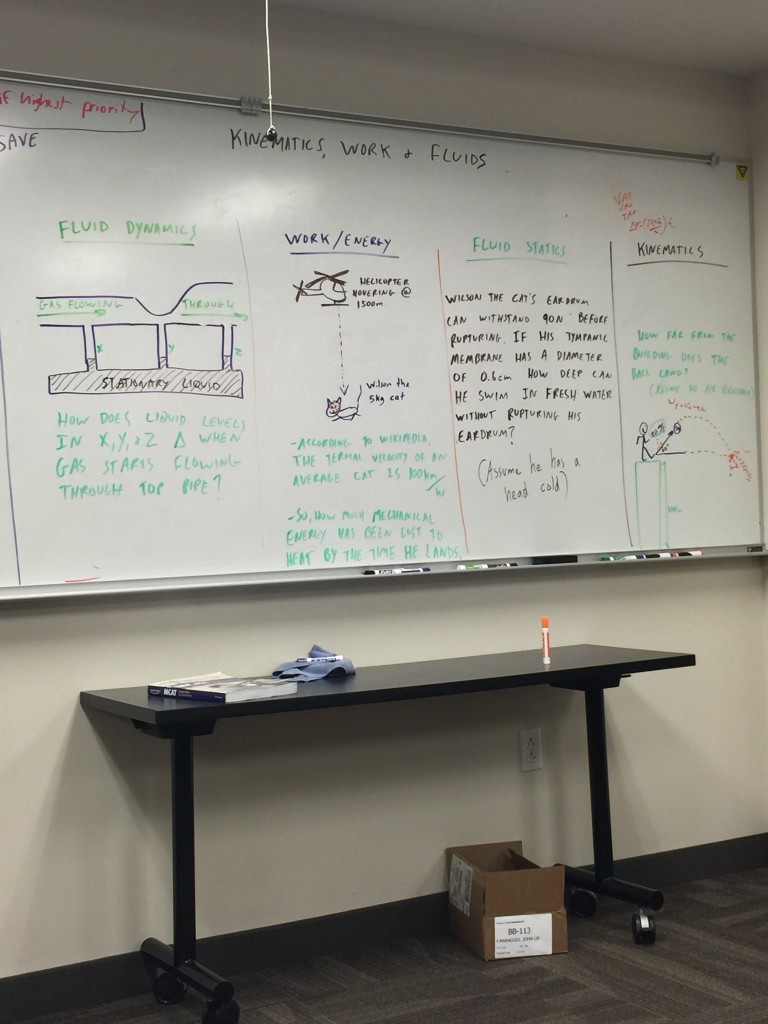 highest priority
SAVE
KINEMATICS, WORK & FLUIDS
FLUID DYNAMICS
GAS FLOWING
THROUGH
X
Y
Z
STATIONARY LIQUID
HOW DOES LIQUID LEVELS
IN X, Y, & Z Δ WHEN
GAS STARTS FLOWING
THROUGH TOP PIPE?
WORK/ENERGY
HELICOPTER
HOVERING @
1500m
Wilson the
5kg cat
-ACCORDING TO WIKIPEDIA,
THE TERMAL VELOCITY OF AN
AVERAGE CAT IS 100km/hr
-SO, HOW MUCH MECHANICAL
ENERGY HAS BEEN LOST TO
HEAT BY THE TIME HE LANDS.
FLUID STATICS
WILSON THE CAT'S EARDRUM
CAN WITHSTAND 90N BEFORE
RUPTURING. IF HIS TYMPANIC
MEMBRANE HAS A DIAMETER
OF 0.6cm HOW DEEP CAN
HE SWIM IN FRESH WATER
WITHOUT RUPTURING HIS
EARDRUM?
(Assume he has a
head cold)
KINEMATICS
HOW FAR FROM THE
BUILDING DOES THE
BALL LAND?
(ASSUME NO AIR RESISTANCE)
MCAT
BB-113